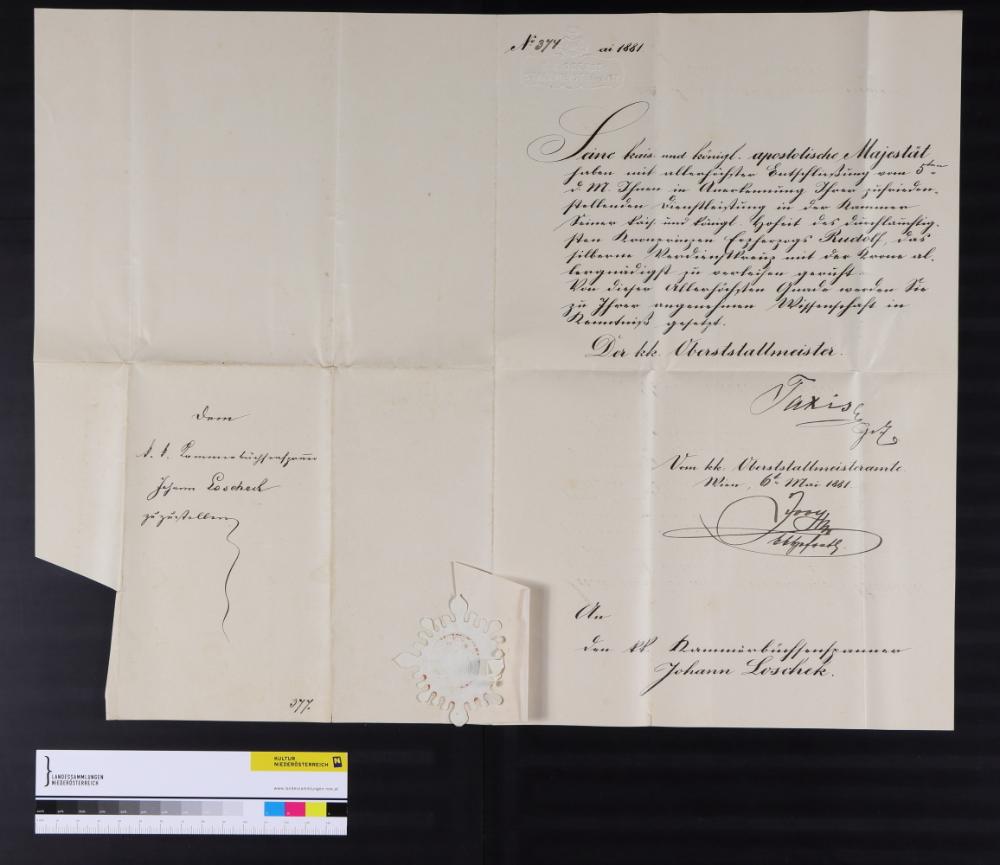 No 374 ai 1881
Seine kais. und königl. apostolische Majestät
haben mit allerhöchster Entschließung vom 5ten
d. M. Ihnen in Anerkennung Ihrer zufrieden-
stellenden Dienstleistung in der Kammer
Seiner kais. und königl. Hoheit des durchlauchtig-
sten Kronprinzen Erzherzogs Rudolf, das
silberne Verdienstkreuz mit der Krone al-
lergnädigst zu verleihen geruht.
Von dieser Allerhöchsten Gnade werden Sie
zu Ihrer angenehmen Wissenschaft in
Kenntniß gesetzt.
Der kk. Oberststallmeister.
Taxis
Vom kk. Oberststallmeisteramte
Wien, 6t Mai 1881.
An
den kk Kammerbüchsenspanner
Johann Loschek.
Dem
k. k. Kammerbüchsenspanner
Johann Loschek
zuzustellen
377.
LANDESSAMMLUNGEN
NIEDERÖSTERREICH
KULTUR
NIEDERÖSTERREICH
www.landessammlungen-noe.at